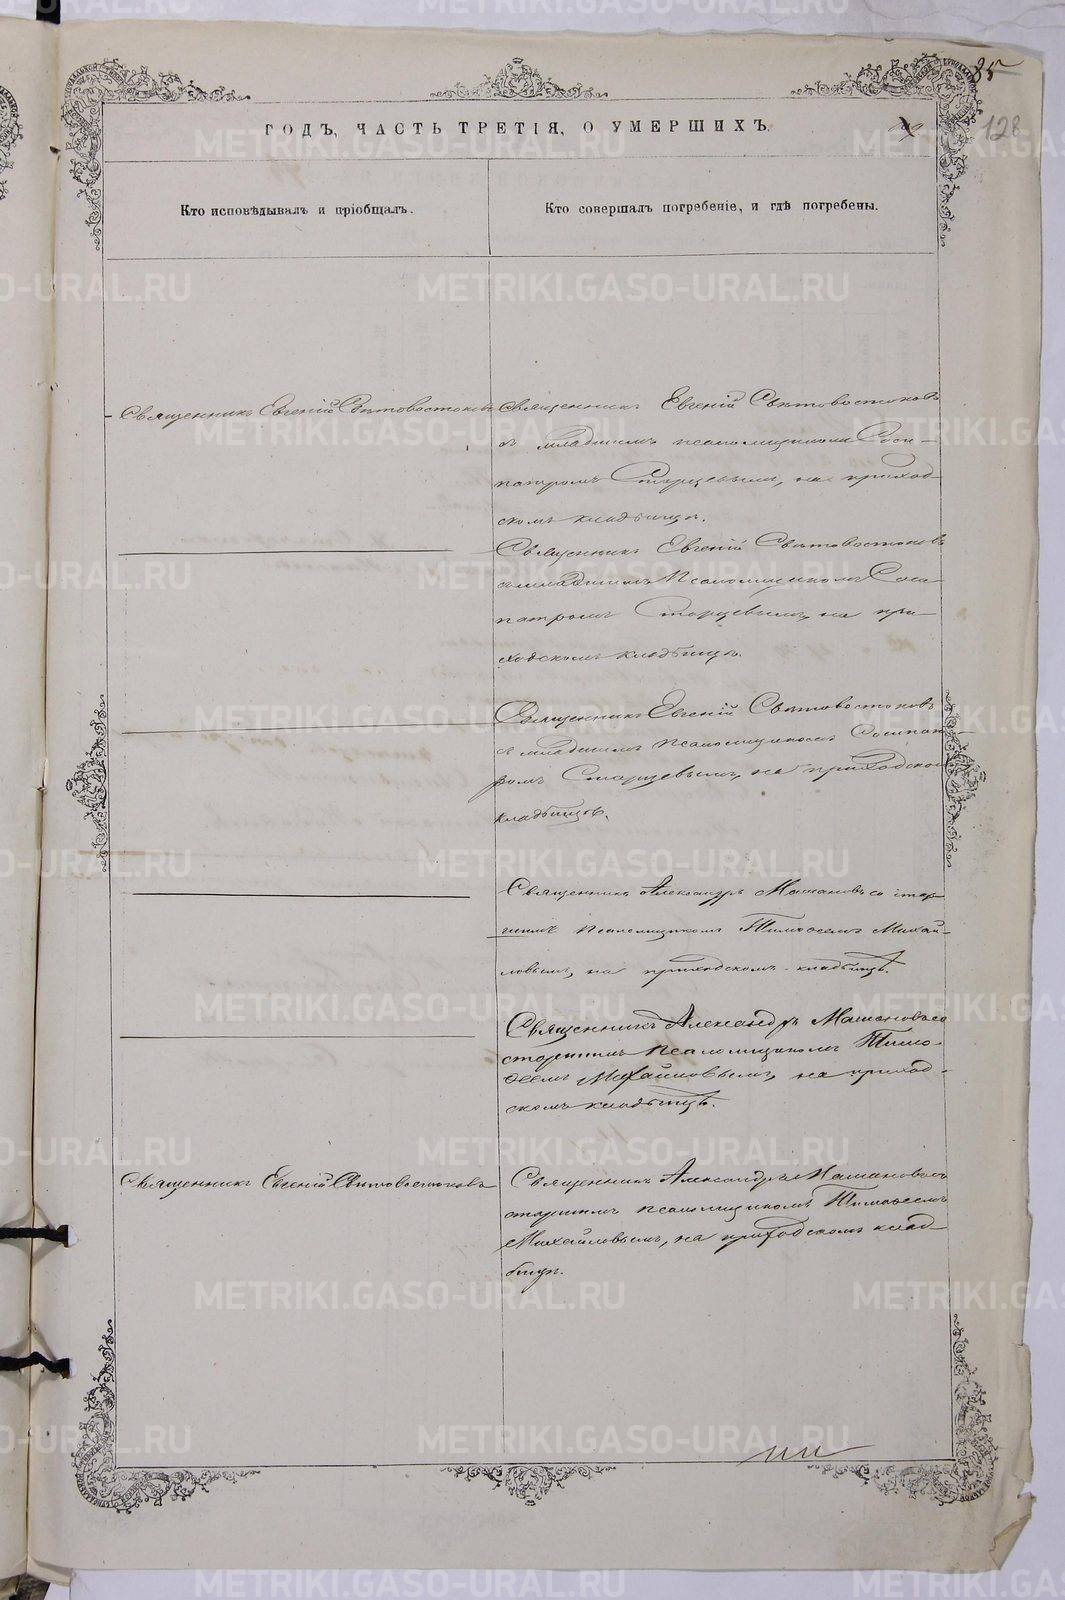 85
128
ГОДЪ, ЧАСТЬ ТРЕТІЯ, О УМЕРШИХЪ.
Кто исповѣдывалъ и пріобщалъ.
Кто совершалъ погребеніе, и гдѣ погребены.
Священникъ Евгеній Свѣтовостоковъ
Священникъ Евгеній Свѣтовостоковъ
съ младшимъ псаломщикомъ Соси-
патромъ Старцевымъ, на приход-
скомъ кладбищѣ.
Священникъ Евгеній Свѣтовостоковъ
съ младшимъ Псаломщикомъ Соси-
патромъ Старцевымъ, на при-
ходскомъ кладбищѣ.
Священникъ Евгеній Свѣтовостоковъ
съ младшимъ псаломщикомъ Сосипат-
ромъ Старцевымъ, на приходскомъ
кладбищѣ.
Священникъ Александръ Мамановъ со стар-
шимъ псаломщикомъ Тимоѳеемъ Михай-
ловымъ, на приходскомъ кладбищѣ.
Священникъ Александръ Мамановъ со
старшимъ псаломщикомъ Тимо-
ѳеемъ Михайловымъ, на приход-
скомъ кладбищѣ.
Священникъ Евгеній Свѣтовостоковъ
Священникъ Александръ Мамановъ со
старшимъ псаломщикомъ Тимоѳеемъ
Михайловымъ, на приходскомъ клад-
бищѣ.
METRIKI.GASO-URAL.RU